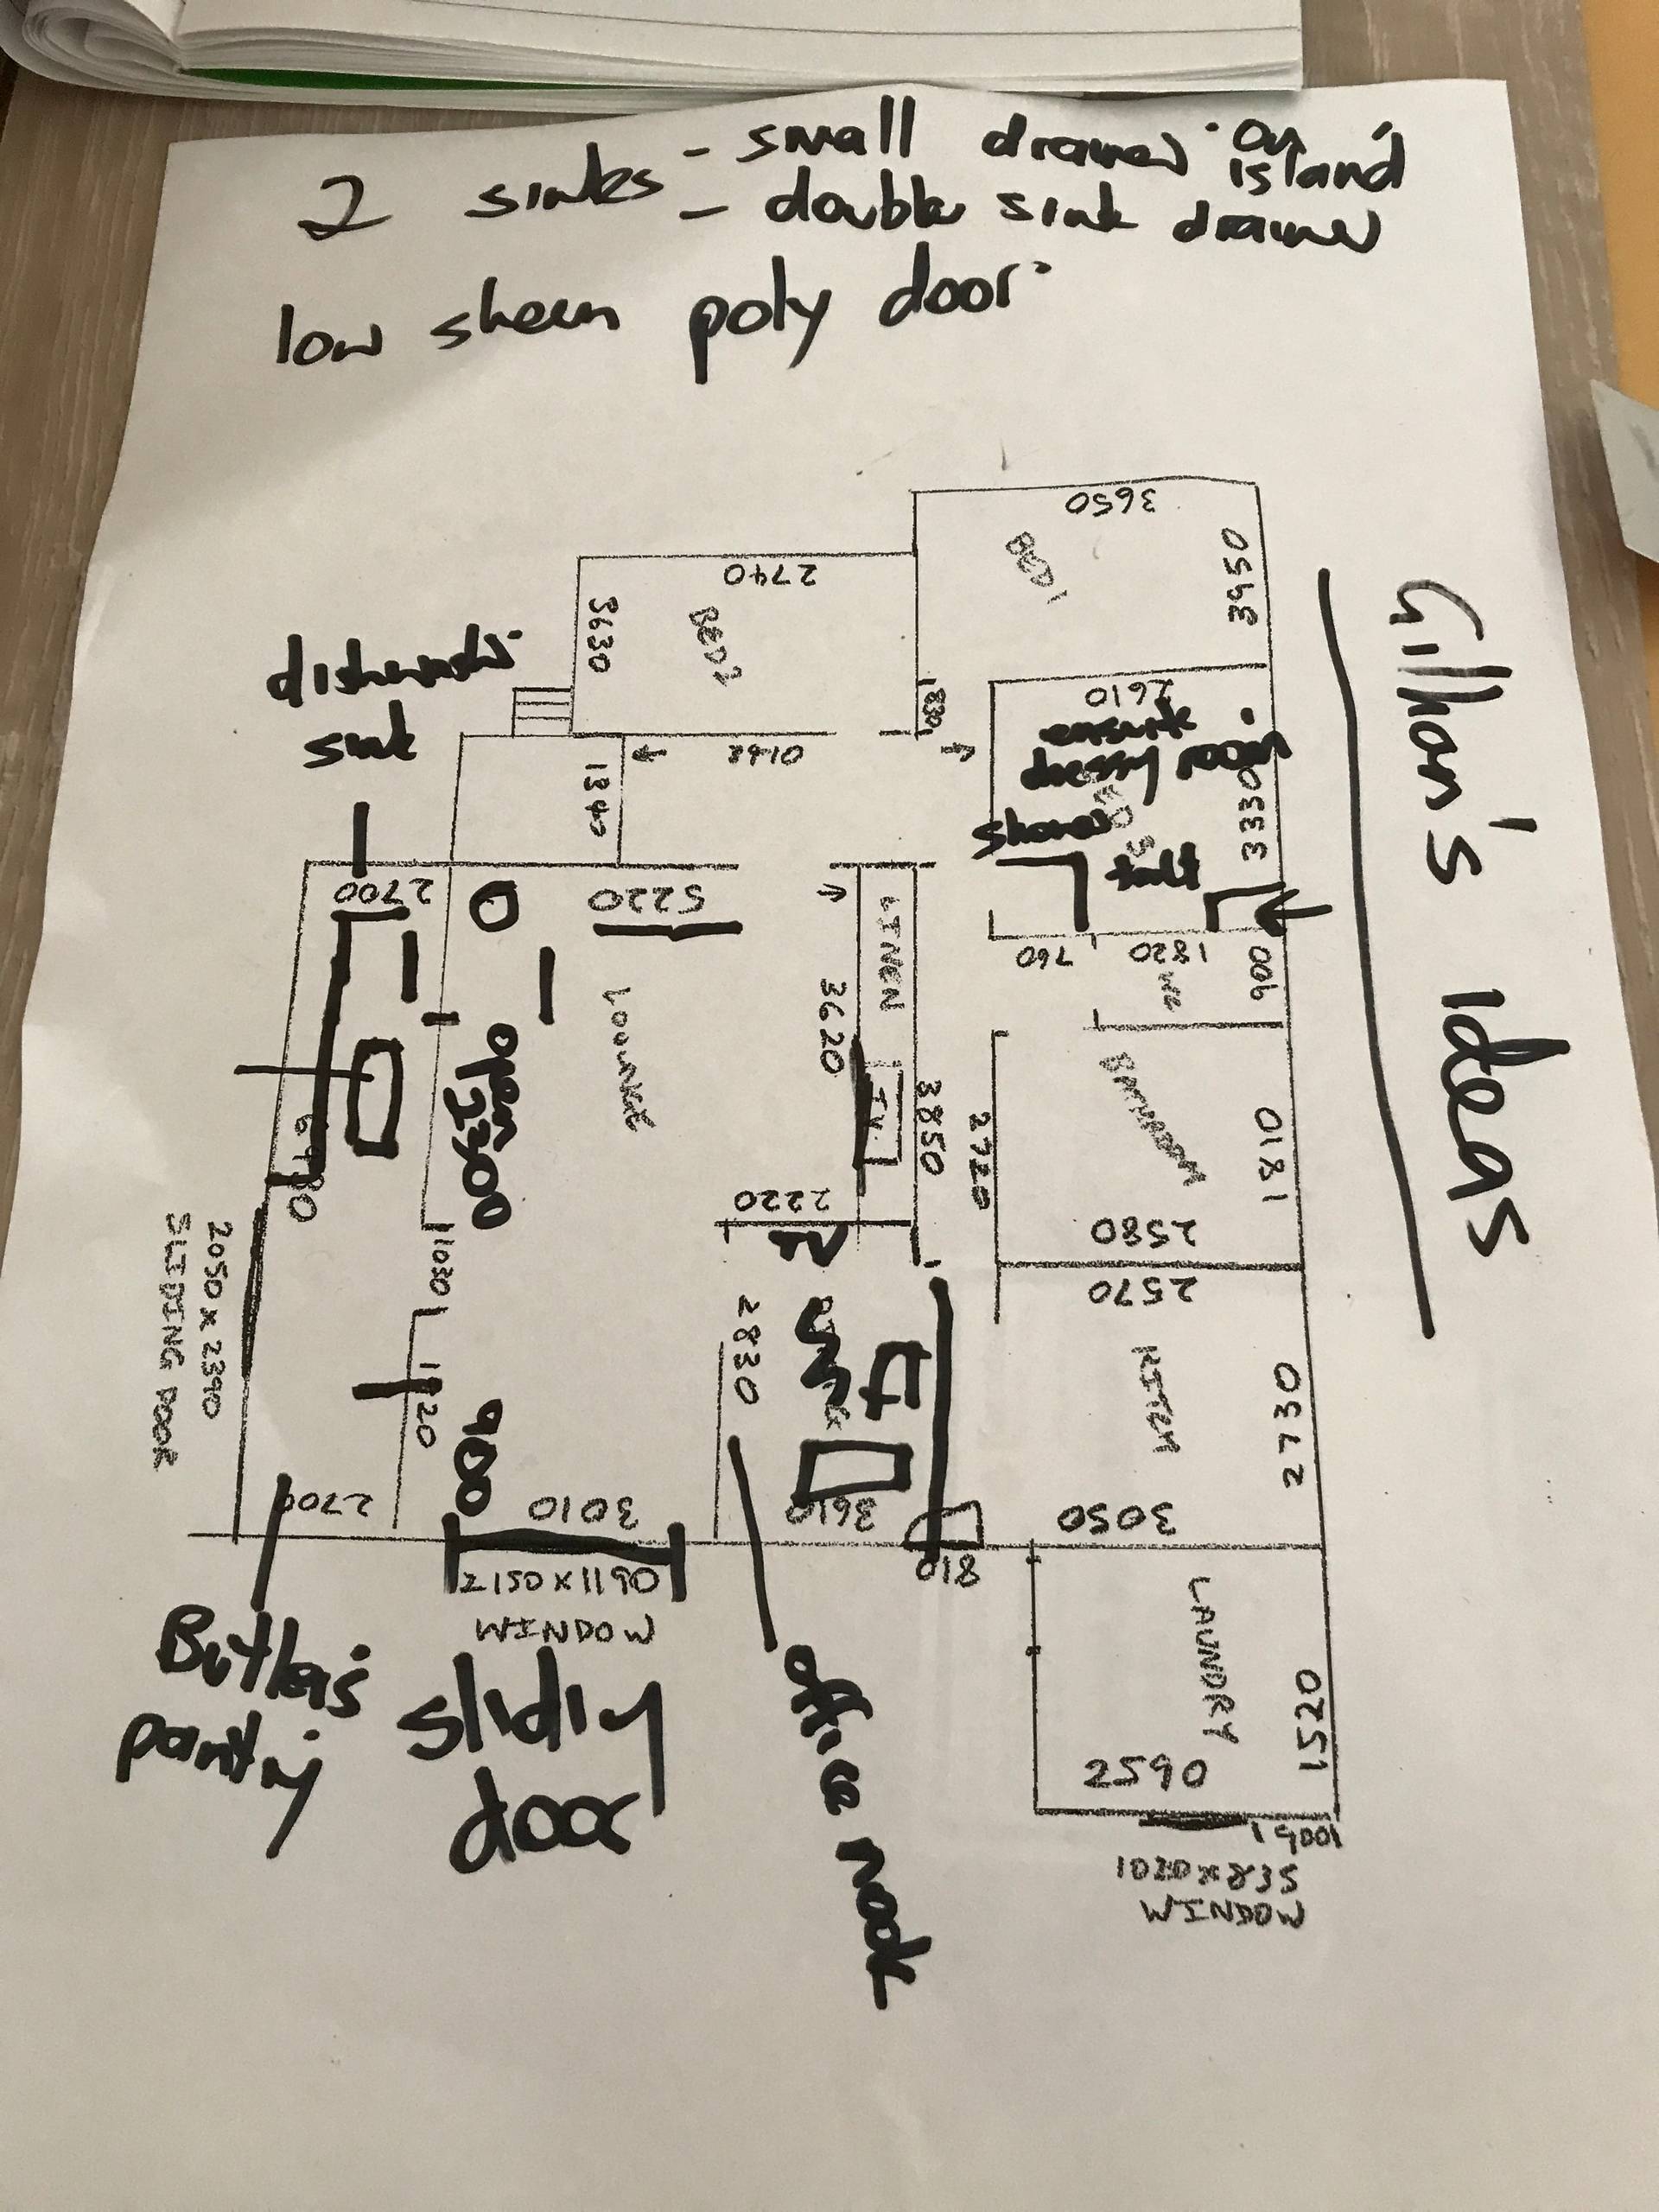 2 sinks - small drawer on island
- double sink drawer
low sheen poly door
Gillian's Ideas
3650
BED 1
3950
2740
3630
BED 2
830
2610
ensuite
dressy room
3330
shower
toilt
dishwasher
sink
1340
2700
5220
LINEN
760
1820
900
WC
3620
LOUNGE
open
2300
T.V.
3850
2720
BATHROOM
1810
2220
TV
2580
2570
1030
2050 x 2390
SLIDING DOOR
2830
KITCH
2730
1120
900
2700
3010
3610
3050
810
2150 x 1190
WINDOW
Butler's
pantry
slidiy
door
office nook
LAUNDRY
1520
2590
1020 x 835
WINDOW